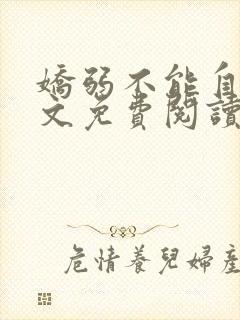 嬌弱不能自
文免費閱讀
危情養兒婦產